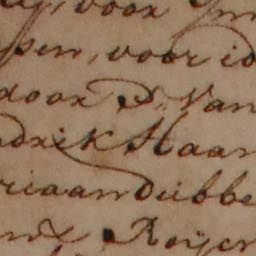 voor
sen, voor id
door D. Van
drik Haan
riaan dubbe
Roijen